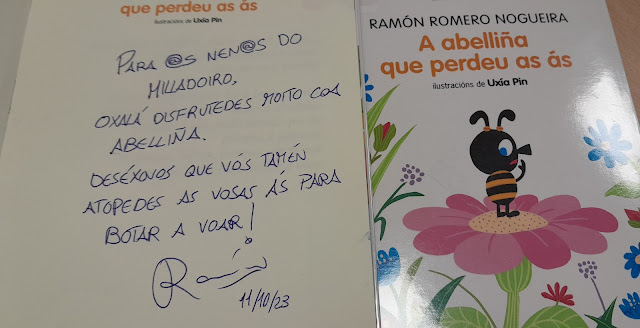 que perdeu as ás
ilustracións de Uxía Pin
PARA @S NEN@S DO
MILLADOIRO,
OXALÁ DISFRUTEDES MOITO COA
ABELLIÑA.
DESÉXOVOS QUE VÓS TAMÉN
ATOPEDES AS VOSAS ÁS PARA
BOTAR A VOAR!
Ramón
11/10/23
RAMÓN ROMERO NOGUEIRA
A abelliña
que perdeu as ás
ilustracións de Uxía Pin